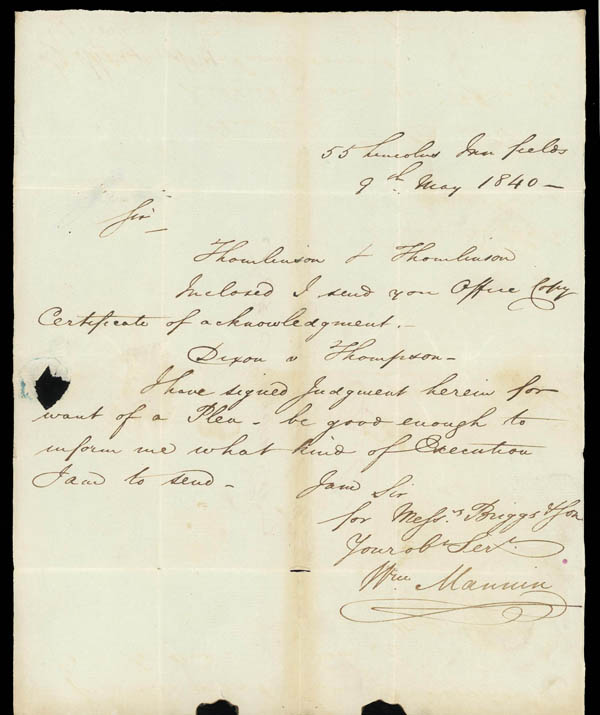 55 Lincolns Inn fields
9th May 1840 –
Sir
Thomlinson & Thomlinson
Inclosed I send you Office Copy
Certificate of acknowledgment. –
Dixon v Thompson –
I have signed Judgment herein for
want of a Plea – be good enough to
inform me what kind of Execution
I am to send –
I am Sir
for Messrs Briggs & Son
Your obt Servt
Wm Mannin